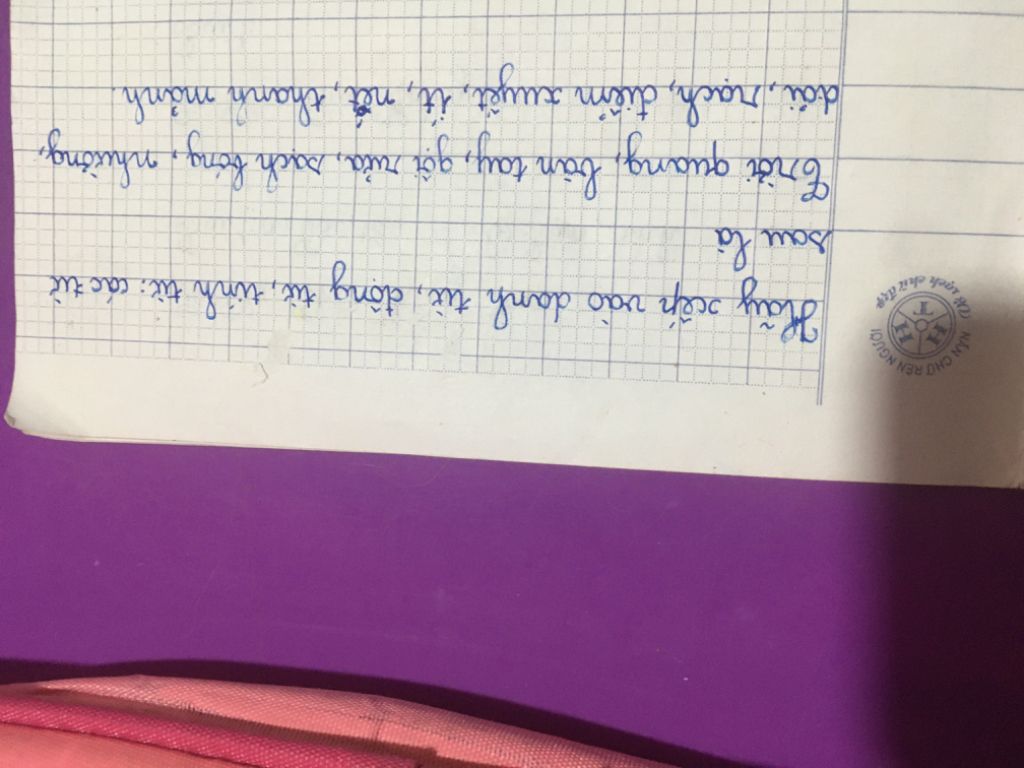 Hãy xếp vào danh từ, động từ, tính từ: các từ
sau là
Trời quang, bàn tay, gội rửa, sạch bóng, nhường,
dải, rạch, điểm xuyết, ít, nét, thanh mảnh.
NẮN CHỮ RÈN NGƯỜI
HTH
Vở sạch chữ đẹp